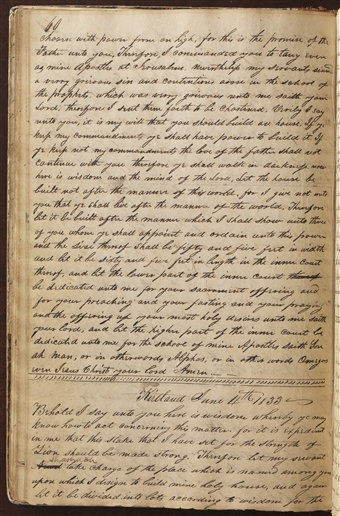 60
chosen with power from on high, for this is the promise of the
Father unto you. Therefore I commanded you to tarry even
as mine Apostles at Jerusalem. Nevertheless my servants
a very grievous sin and contentions arose in the school of
the prophets, which was very grievous unto me saith your
Lord, therefore I sent them forth to be chastened. Verily I say
unto you, it is my will that you should build an house, if ye
keep my commandments ye shall have power to build it if
ye keep not my commandments the love of the father shall not
continue with you therefore ye shall walk in darkness now
here is wisdom and the mind of the Lord, Let the house be
built not after the manner of this world, for I give not unto
you that ye shall live after the manner of the world, Therefore
let it be built after the manner which I shall show unto three
of you whom ye shall appoint and ordain unto this power
and the size thereof shall be fifty and five feet in width
and let it be sixty and five feet in length in the inner court
thereof, and let the lower part of the inner court
be dedicated unto me for your sacrament offering and
for your preaching and your fasting and your praying
and the offering up your most holy desires unto me saith
your lord, and let the higher part of the inner court be
dedicated unto me for the school of mine Apostles saith Son
ah Man, or in otherwords Alphas, or in other words Omegus
even Jesus Christ your lord Amen
Kirtland June 1833
Behold I say unto you here is wisdom whereby ye may
know how to act concerning this matter for it is expedient
in me that this stake that I have set for the strength of
Zion should be made strong. Therefore let my servant
take charge of the place which is named among you
upon which I design to build mine holy house, and again
let it be divided into lots according to wisdom for the